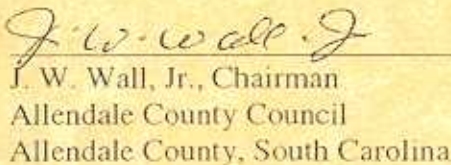 J. W. Wall, Jr
J. W. Wall, Jr., Chairman
Allendale County Council
Allendale County, South Carolina